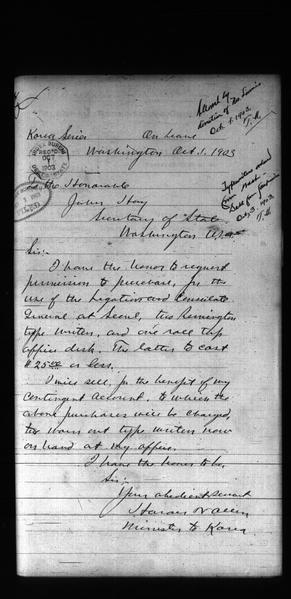 Korea Series
On Leave
Washington Oct. 1. 1903
To the Honorable
John Hay
Secretary of State
Washington
Sir:-
I have the honor to request
permission to purchase, for the
use of the Legation and Consulate
General at Seoul, two Remington
type writers, and one roll top
office desk. The latter to cost
$25.00 or less.
I will sell, for the benefit of my
Contingent Account, to which the
above purchases will be charged,
two worn out type writers now
on hand at my office.
I have the honor to be,
Sir:-
Your obedient servant
Horace N Allen
Minister to Korea
Oct. 5. 1903
Typewriters ordered
Oct. 3. 1903
REC'D
OCT
1903